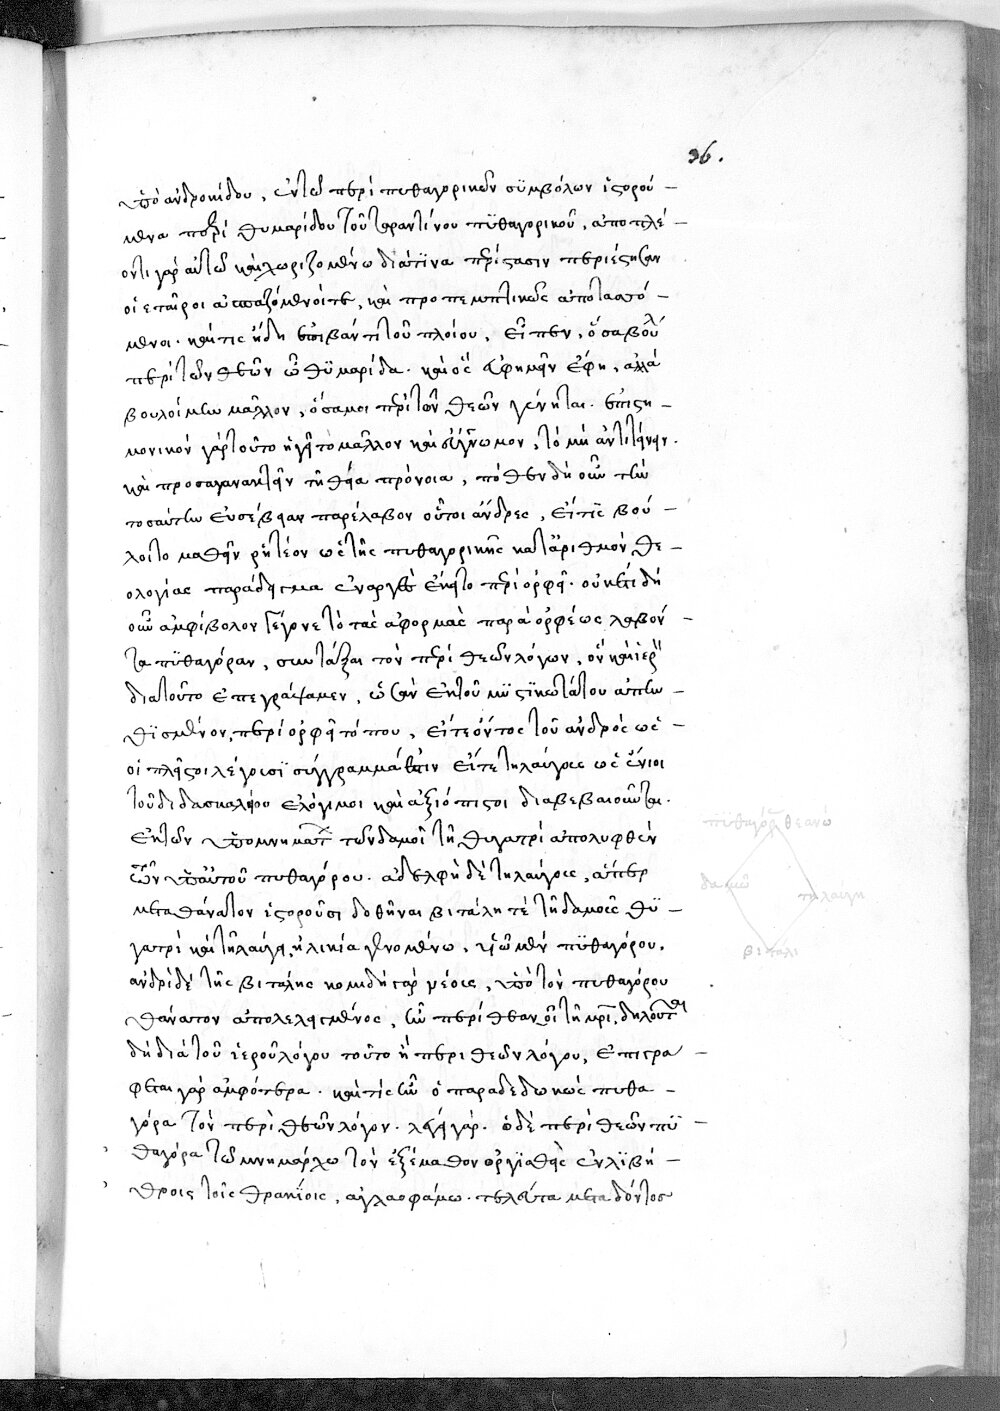 36.
ὑπὸ ἀνδροκίδου, ἐν τῶ περὶ πυθαγορικῶν συμβόλων ἱστορού-
μενα περὶ θυμαρίδου τοῦ ταραντίνου πυθαγορικοῦ, ἀποπλέ-
οντι γὰρ αὐτῶ καὶ χωριζομένω διά τινα περίστασιν περιέστησαν
οἱ ἑταῖροι ἀσπαζόμενοί τε, καὶ προπεμπτικῶς ἀποτασσό-
μενοι. καί τις ἤδη ἐπιβάντι τοῦ πλοίου, εἶπεν, ὅσα βούλει
περὶ τῶν θεῶν ὦ θυμαρίδα. καὶ ὃς εὐφημεῖν ἔφη, ἀλλὰ
βουλοίμην μᾶλλον, ὅσα μοι περὶ τῶν θεῶν γένηται. ἐπιστη-
μονικὸν γὰρ τοῦτο ἡγεῖτο μᾶλλον καὶ εὔγνωμον, τὸ μὴ ἀντιτείνειν.
καὶ προσαγανακτεῖν τῆ θεία προνοία, πόθεν δὴ οὖν τὴν
τοσαύτην εὐσέβειαν παρέλαβον οὗτοι ἄνδρες, εἴ τις βού-
λοιτο μαθεῖν ῥητέον ὡς τῆς πυθαγορικῆς κατ' ἀριθμὸν θε-
ολογίας παράδειγμα ἐναργὲς ἔκειτο περὶ ὀρφεῖ. οὐκέτι δὴ
οὖν ἀμφίβολον γέγονε τὸ τὰς ἀφορμὰς παρὰ ὀρφέως λαβόν-
τα πυθαγόραν, συντάξαι τὸν περὶ θεῶν λόγον, ὃν καὶ ἱερὸν
διατοῦτο ἐπέγραψαμεν, ὡσὰν ἐκ τοῦ μυστικωτάτου ἀπην-
θισμένον, περὶ ὀρφεῖ τόπου, εἴτε ὄντος τοῦ ἀνδρὸς ὡς-
οἱ πλεῖστοι λέγουσι σύγγραμμά ἐστιν εἴτε τηλαύγους ὡς ἔνιοι
τοῦ διδασκαλείου ἐλόγιμοι καὶ ἀξιόπιστοι διαβεβαιοῦνται.
ἐκ τῶν ὑπομνημάτων τῶν δαμοῖ τῆ θυγατρὶ ἀπολυφθέν
των ὑπ' αὐτοῦ πυθαγόρου. ἀδελφῆ δὲ τηλαύγους, ἅπερ
μετὰ θάνατον ἱστοροῦσι δοθῆναι βιτάλη τε τῆ δαμοῦς θυ-
γατρὶ καὶ τηλαύγει, ἡλικία γενομένω, υἱῶ μὲν πυθαγόρου,
ἀνδρὶ δὲ τῆς βιτάλης κομιδῆ γὰρ νέος, ὑπὸ τὸν πυθαγόρου
θάνατον ἀπολελειμμένος, ἦν περὶ θεανοῖ τῆ μητρὶ. δηλοῦται
δὴ διὰ τοῦ ἱεροῦ λόγου τοῦτο ἢ περὶ θεῶν λόγου, ἐπιγρα-
φεται γὰρ ἀμφότερα. καὶ τίς ἦν ὁ παραδεδωκὼς πυθα-
γόρα τὸν περὶ θεῶν λόγον. λέγει γάρ. ὁ δὲ περὶ θεῶν πυ-
θαγόρα τῶ μνημάρχω τὸν ἐξέμαθον ὀργιαθεὶς ἐν λιβή-
θροις τοῖς θρακίοις, ἀγλαοφάμω. τελετὰ μεταδόντος
πυθαγόρας θεανω
δαμῶ
τηλαυγη
βιταλι